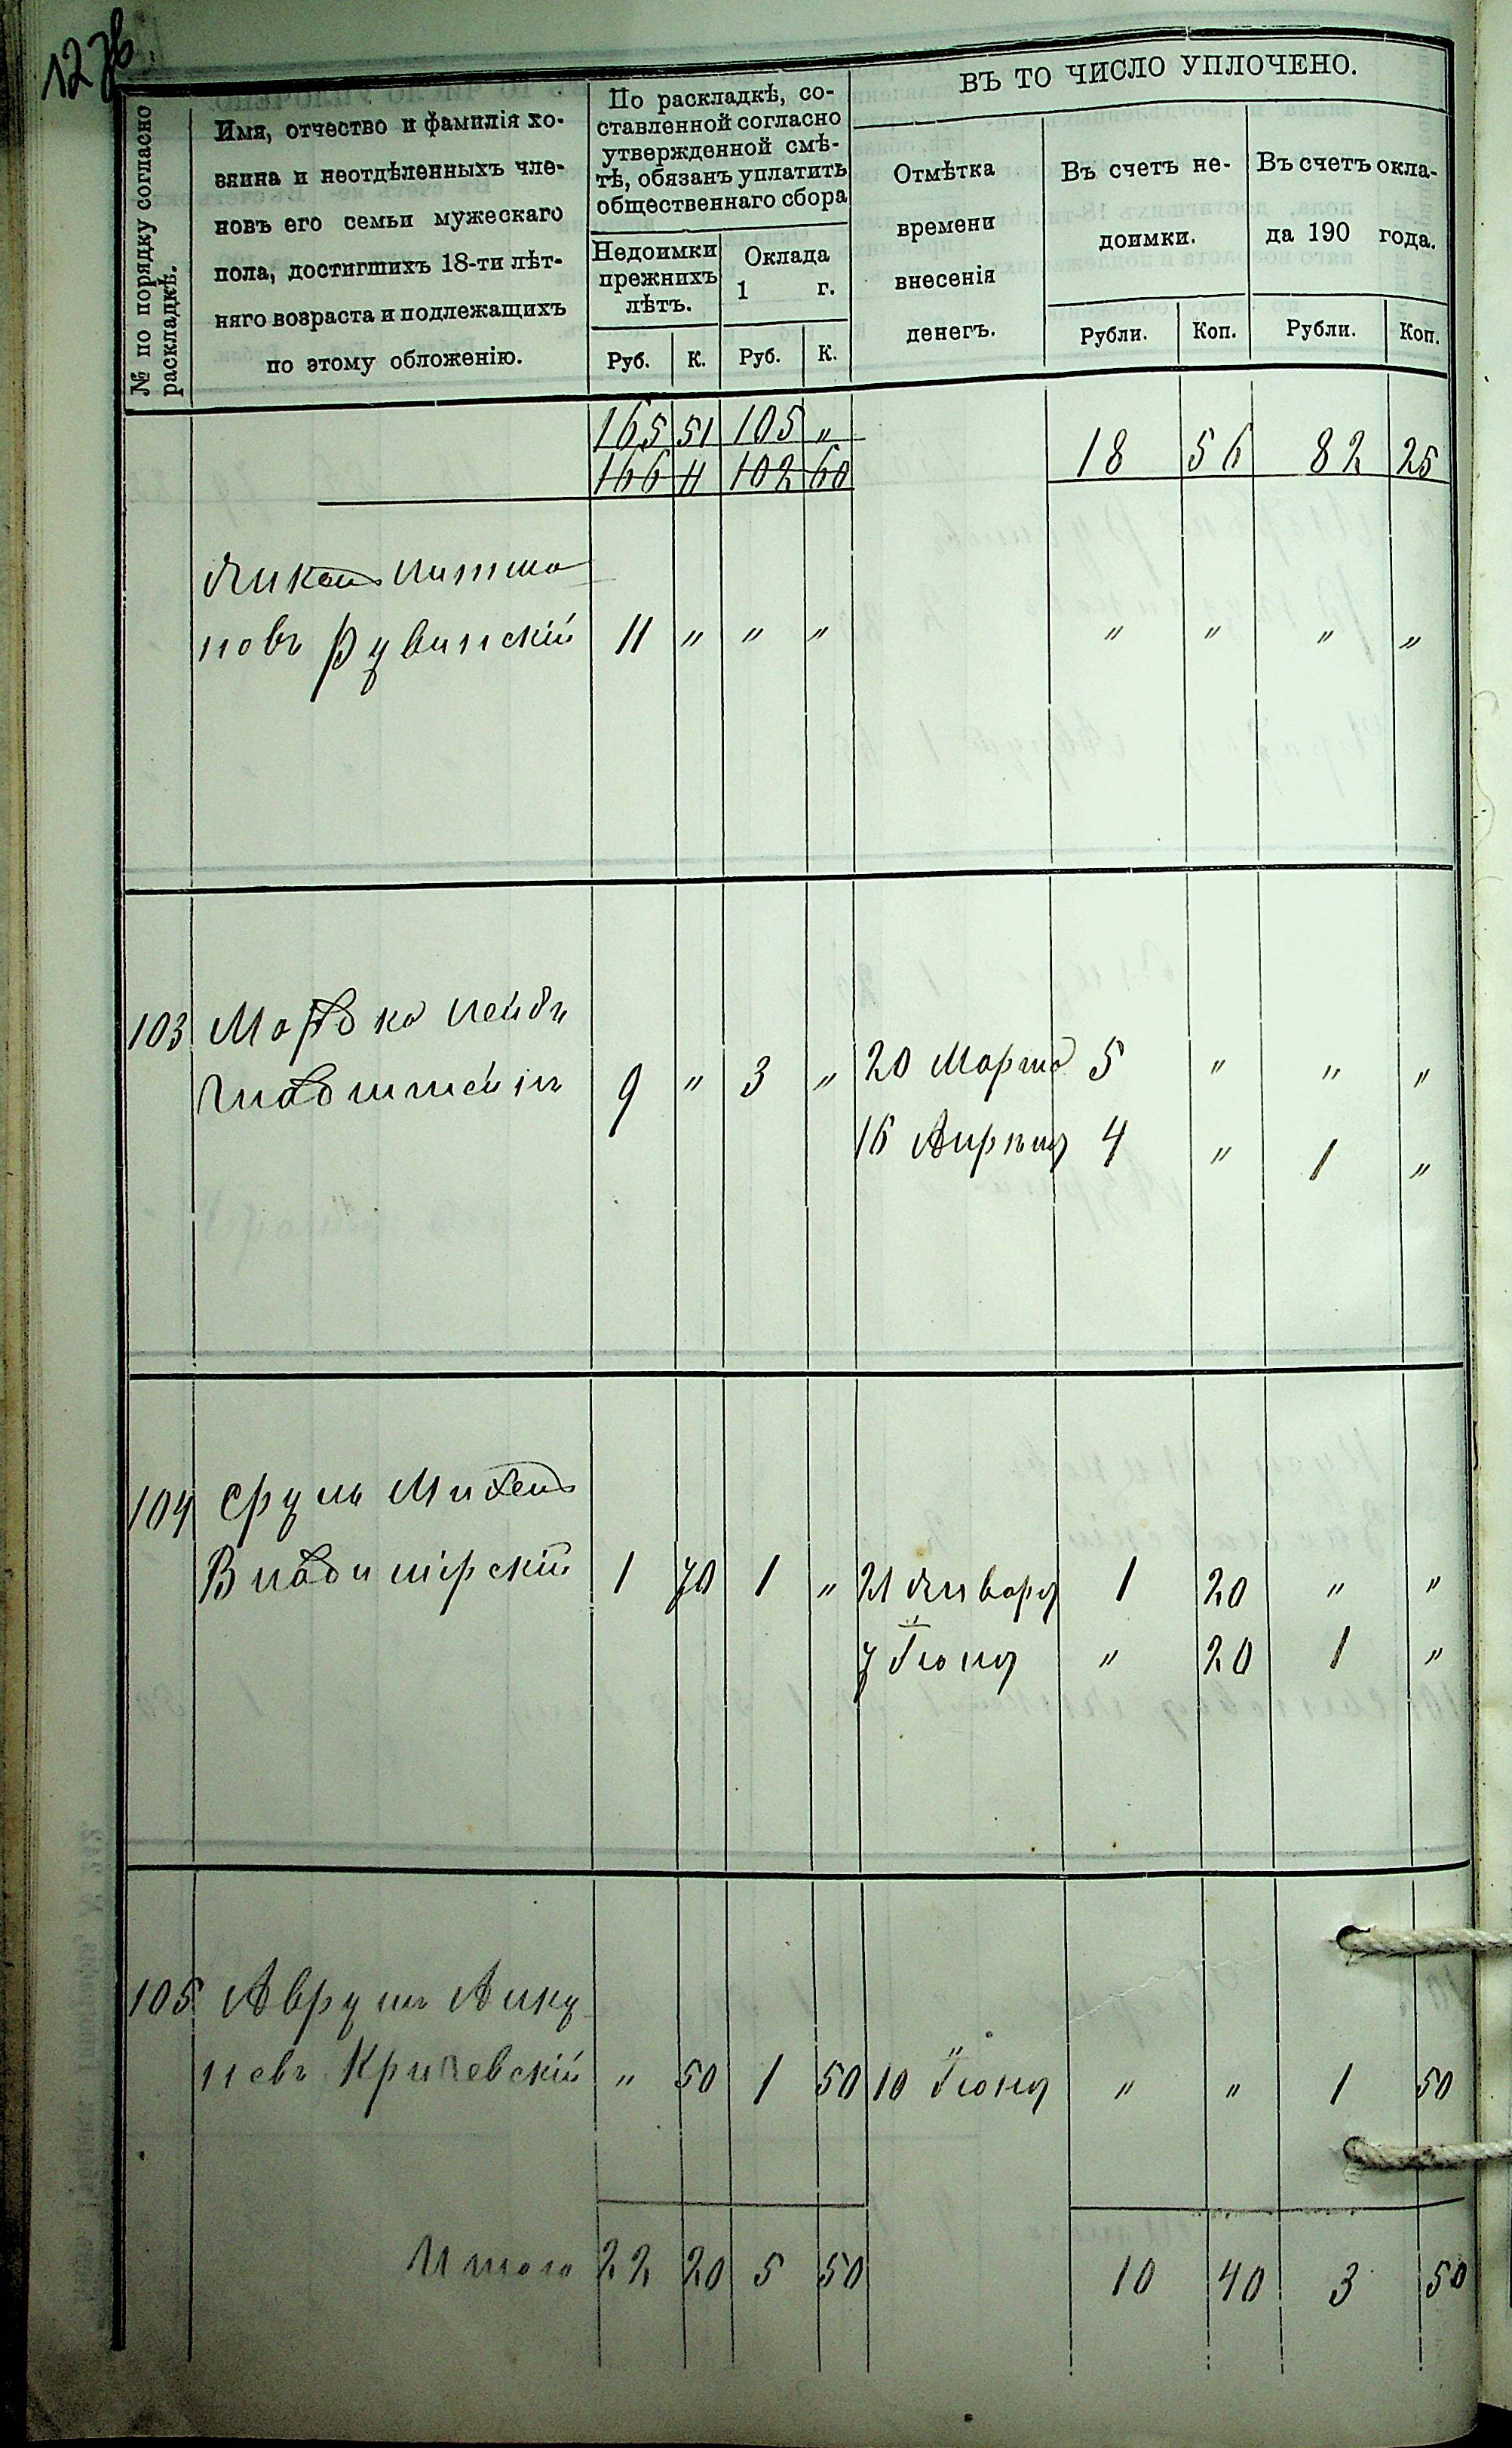 127б
№ по порядку согласно
раскладкѣ.
Имя, отчество и фамилія хо-
зяина и неотдѣленныхъ чле-
новъ его семьи мужескаго
пола, достигшихъ 18-ти лѣт-
няго возраста и подлежащихъ
по этому обложенію.
По раскладкѣ, со-
ставленной согласно
утвержденной смѣ-
тѣ, обязанъ уплатить
общественнаго сбора
Недоимки
прежнихъ
лѣтъ.
Оклада
1 г.
Руб. К. Руб. К.
ВЪ ТО ЧИСЛО УПЛОЧЕНО.
Отмѣтка
времени
внесенія
денегъ.
Въ счетъ не-
доимки.
Въ счетъ окла-
да 190 года.
Рубли. Коп. Рубли. Коп.
165 51 105 "
166 11 102 60
18 56 82 25
новъ Рувинскій 11 " " " " " " "
103 Мордко Лейбъ
Гладштейнъ 9 " 3 " 20 Марта 5 " " "
16 Апрѣля 4 " 1 "
104 Сруль Михель
Владимірскій 1 70 1 " 21 Января 1 20 " "
7 Іюня " 20 1 "
105 Аврумъ Анку
левъ Кричевскій " 50 1 50 10 Іюня " " 1 50
Итого 22 20 5 50 10 40 3 50